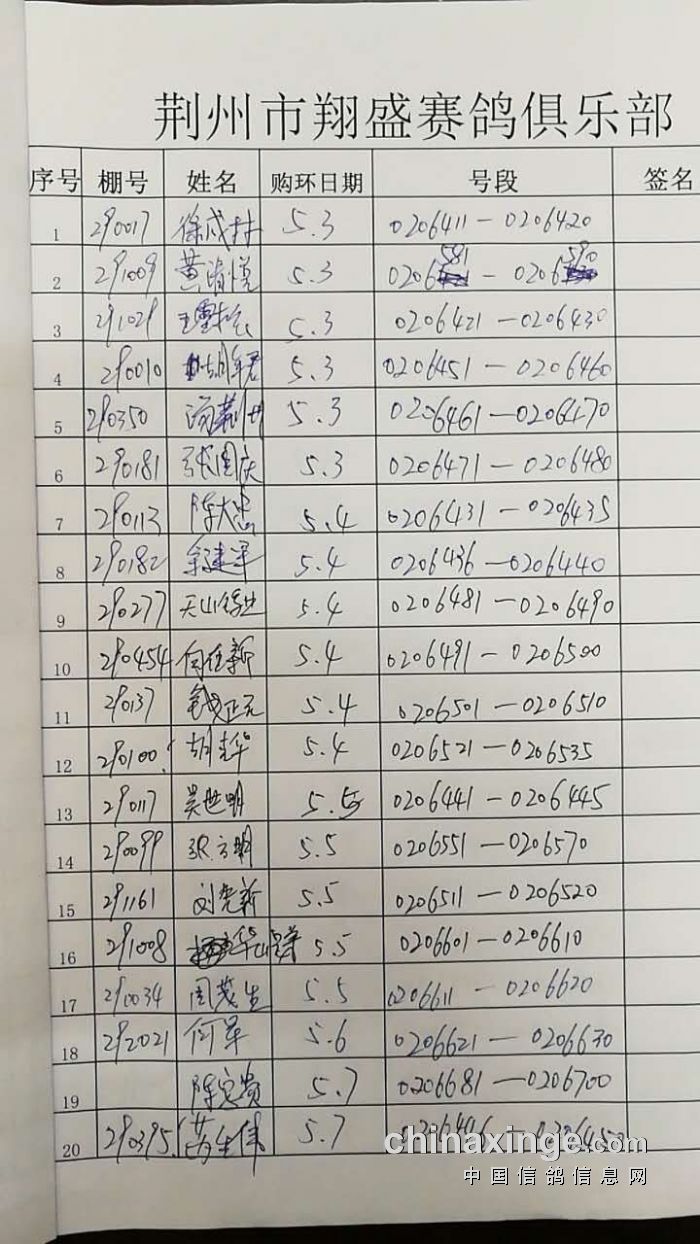 荆州市翔盛赛鸽俱乐部
序号 棚号 姓名 购环日期 号段 签名
1 290017 徐成村 5.3 0206411—0206420
2 291009 黄清悦 5.3 0206581—0206590
3 291029 5.3 0206421—0206430
4 290010 胡年君 5.3 0206451—0206460
5 290350 5.3 0206461—0206470
6 290181 张国庆 5.3 0206471—0206480
7 290113 陈大忠 5.4 0206431—0206435
8 290182 余建军 5.4 0206436—0206440
9 290277 天山 5.4 0206481—0206490
10 290454 向任新 5.4 0206491—0206500
11 290137 钱正元 5.4 0206501—0206510
12 290100 胡青华 5.4 0206521—0206535
13 290117 吴世明 5.5 0206441—0206445
14 290099 张方明 5.5 0206551—0206570
15 291161 刘先新 5.5 0206511—0206520
16 291008 5.5 0206601—0206610
17 290034 周茂生 5.5 0206611—0206620
18 292021 何军 5.6 0206621—0206630
19 陈宏贵 5.7 0206681—0206700
20 290395 5.7
chinaxinge.com
中国信鸽信息网